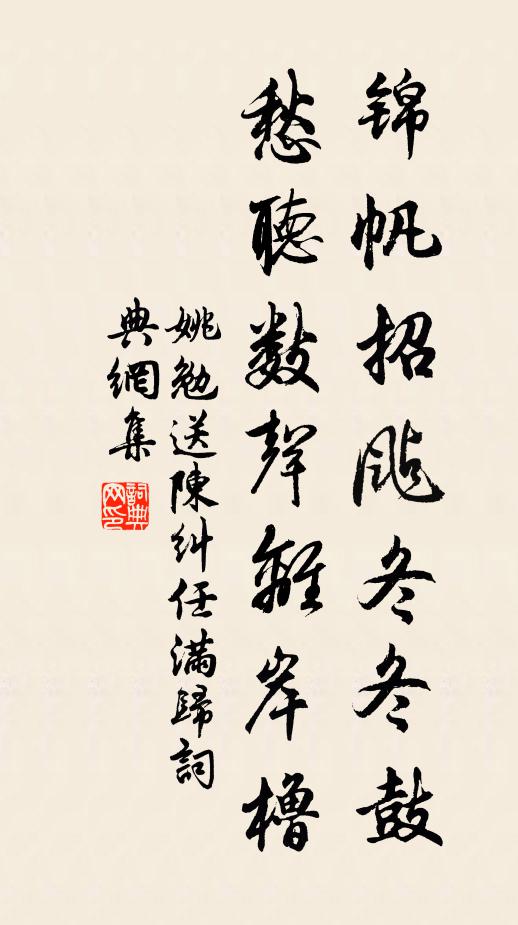 锦帆招飐冬冬鼓
愁聽数聲離岸櫓
姚勉送陳糾任滿歸詞
典網集
詞典
网印